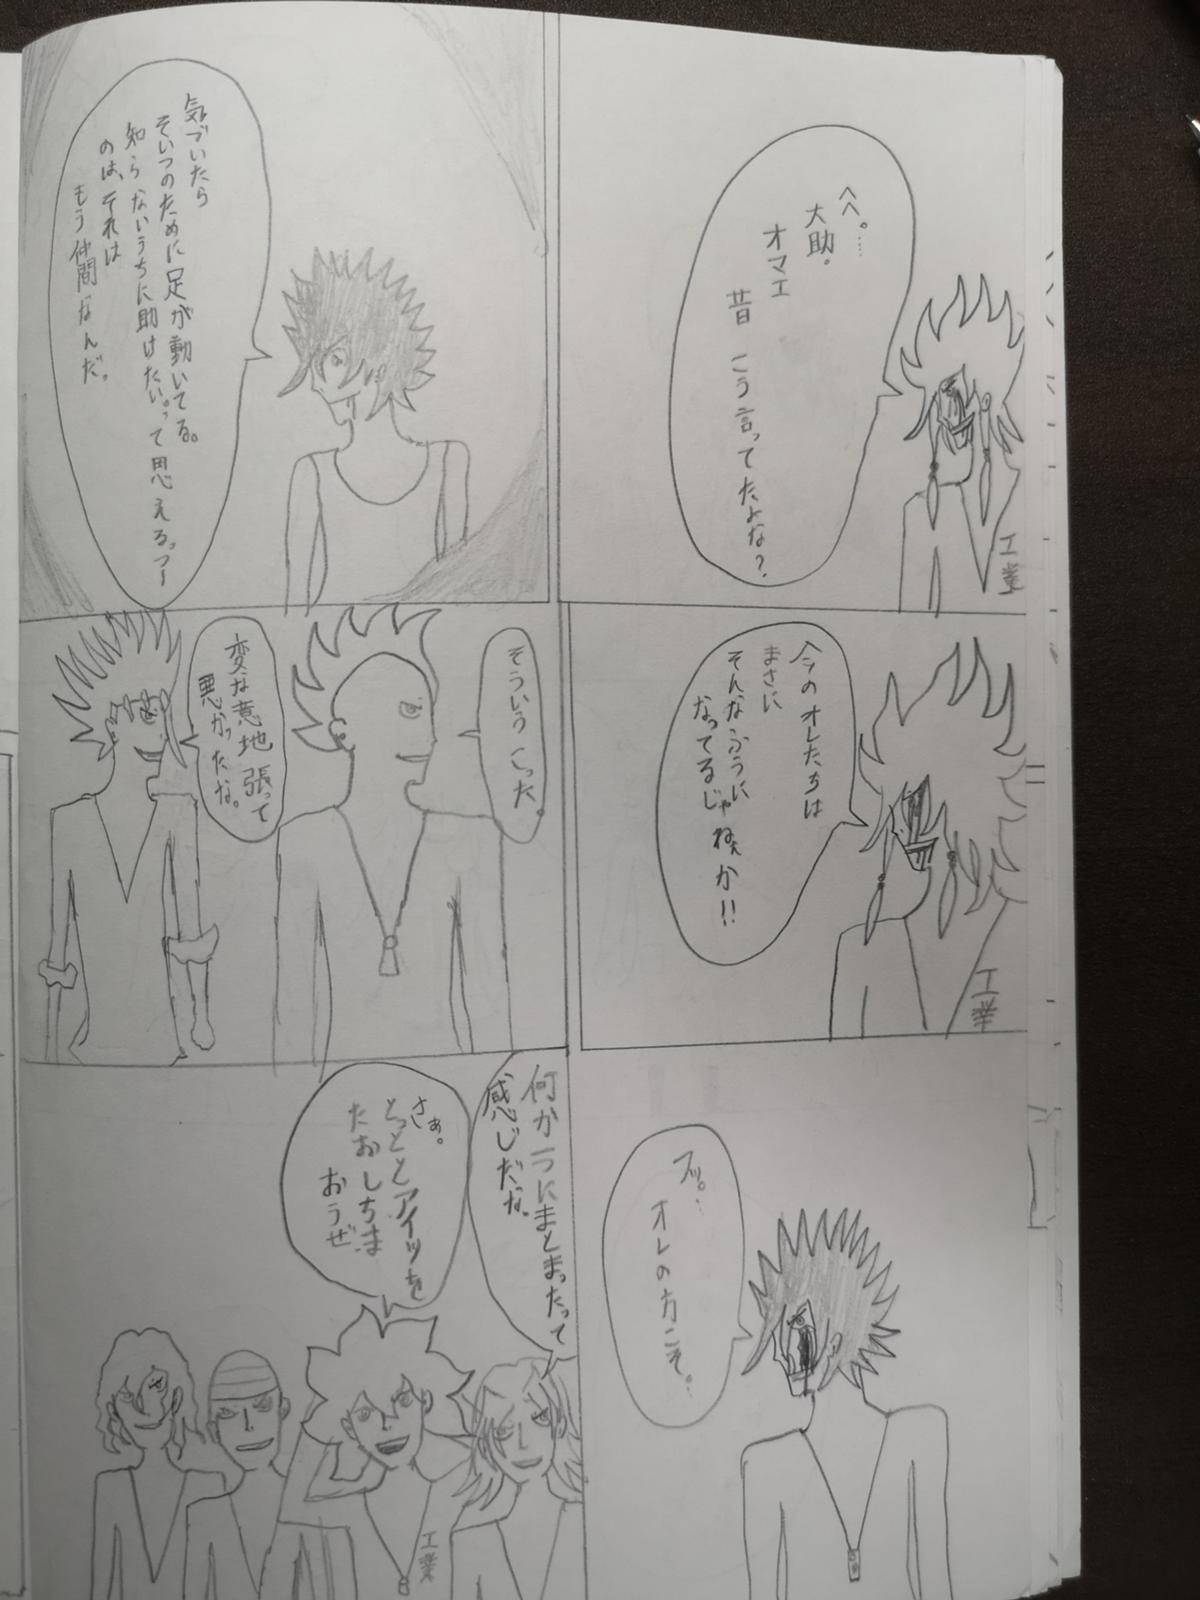 へへ。…
大助。
オマエ
昔 こう言ってたよな?
工業
気づいたら
そいつのために足が動いてる。
知らないうちに助けたい。って思えるっつー
のは、それは
もう仲間なんだ。
今のオレたちは
まさに
そんなふうに
なってるじゃねぇか!!
工業
そういうこった。
変な意地張って
悪かったな。
フッ。…
オレの方こそ。…
何か一つにまとまったって
感じだな。
さぁ。
とっととアイツを
たおしちま
おうぜ
工業